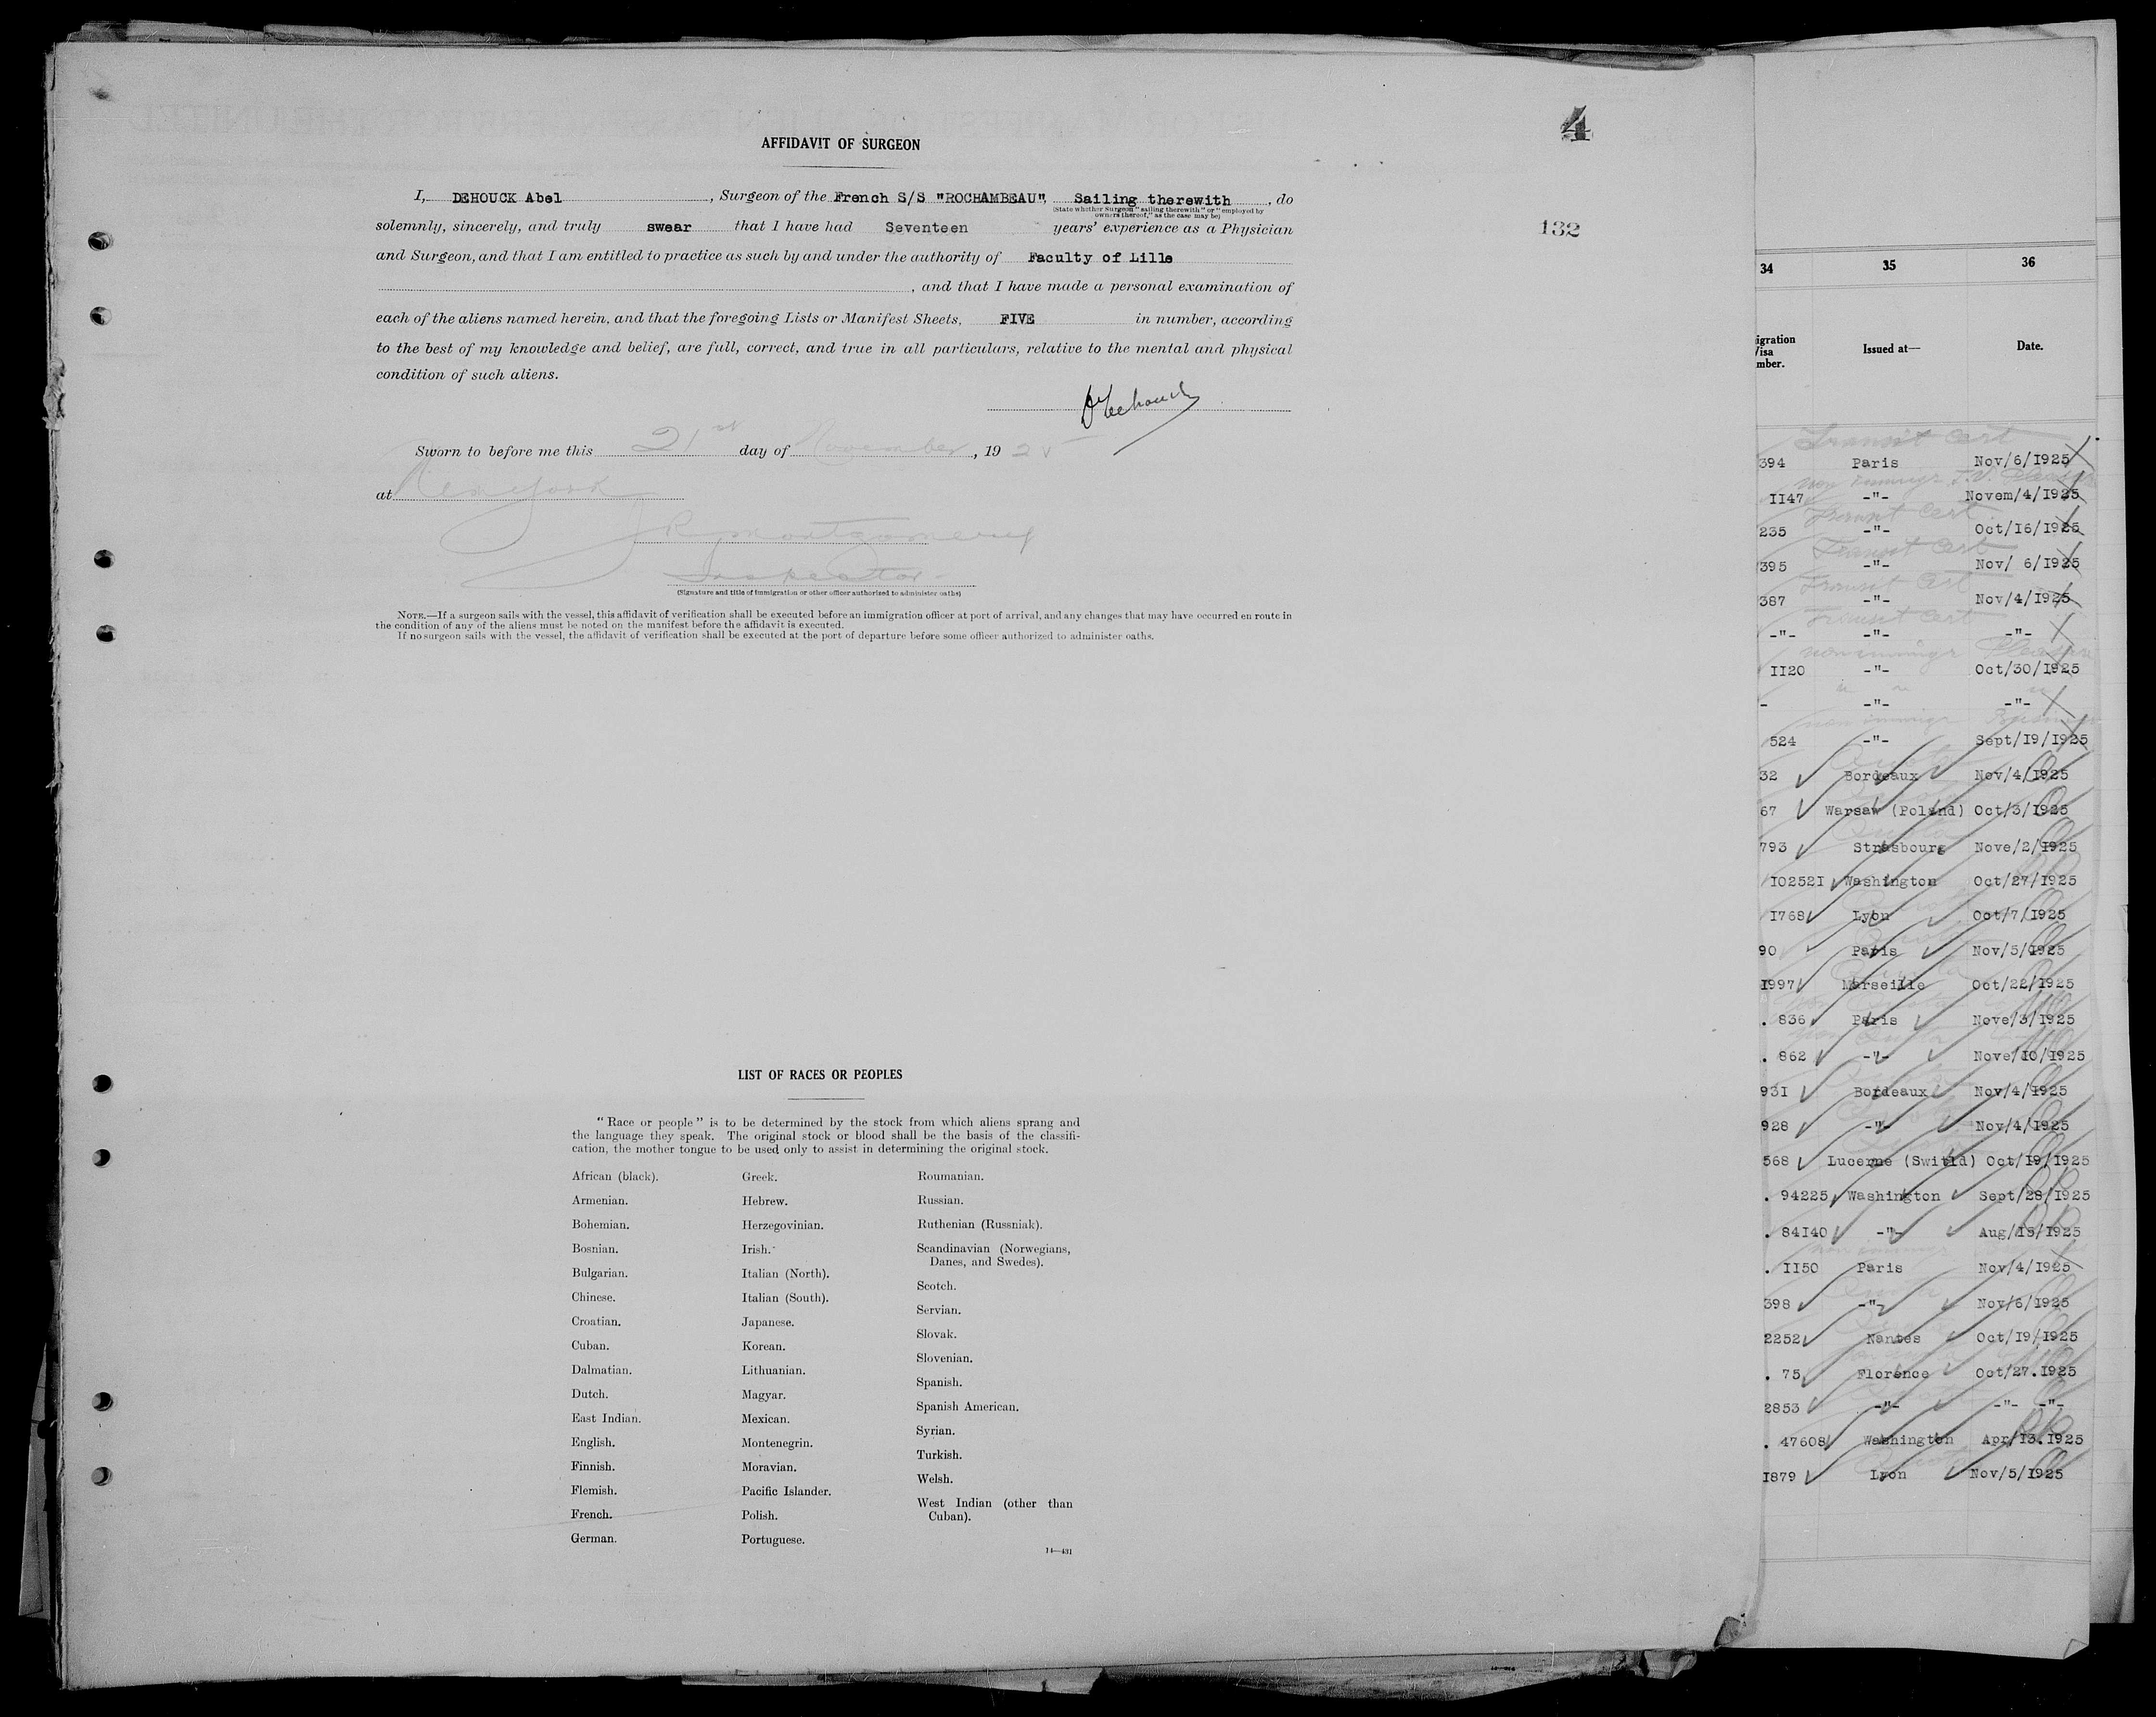 4
AFFIDAVIT OF SURGEON
I, DEHOUCK Abel, Surgeon of the French S/S "ROCHAMBEAU", Sailing therewith, do
(State whether Surgeon "sailing therewith" or "employed by
owners thereof," as the case may be)
solemnly, sincerely, and truly swear that I have had Seventeen years' experience as a Physician
132
and Surgeon, and that I am entitled to practice as such by and under the authority of Faculty of Lille
, and that I have made a personal examination of
each of the aliens named herein, and that the foregoing Lists or Manifest Sheets, FIVE in number, according
to the best of my knowledge and belief, are full, correct, and true in all particulars, relative to the mental and physical
condition of such aliens.
Sworn to before me this 21st day of November, 1925
at New York
J R Montgomery
Inspector
(Signature and title of immigration or other officer authorized to administer oaths)
NOTE.—If a surgeon sails with the vessel, this affidavit of verification shall be executed before an immigration officer at port of arrival, and any changes that may have occurred en route in
the condition of any of the aliens must be noted on the manifest before the affidavit is executed.
If no surgeon sails with the vessel, the affidavit of verification shall be executed at the port of departure before some officer authorized to administer oaths.
LIST OF RACES OR PEOPLES
"Race or people" is to be determined by the stock from which aliens sprang and
the language they speak. The original stock or blood shall be the basis of the classifi-
cation, the mother tongue to be used only to assist in determining the original stock.
African (black).
Armenian.
Bohemian.
Bosnian.
Bulgarian.
Chinese.
Croatian.
Cuban.
Dalmatian.
Dutch.
East Indian.
English.
Finnish.
Flemish.
French.
German.
Greek.
Hebrew.
Herzegovinian.
Irish.
Italian (North).
Italian (South).
Japanese.
Korean.
Lithuanian.
Magyar.
Mexican.
Montenegrin.
Moravian.
Pacific Islander.
Polish.
Portuguese.
Roumanian.
Russian.
Ruthenian (Russniak).
Scandinavian (Norwegians,
Danes, and Swedes).
Scotch.
Servian.
Slovak.
Slovenian.
Spanish.
Spanish American.
Syrian.
Turkish.
Welsh.
West Indian (other than
Cuban).
14—431
34 35 36
igration
Visa
mber.
Issued at—
Date.
Transit Cert
394 Paris Nov/6/1925
non immigr T.V. Pleasure
1147 -"- Novem/4/1925
Transit Cert
235 -"- Oct/16/1925
Transit Cert
395 -"- Nov/ 6/1925
Transit Cert
387 -"- Nov/4/1925
Transit Cert
-"- -"- -"-
non immigr Pleasure
1120 -"- Oct/30/1925
- -"- -"-
non immigr
524 -"- Sept/19/1925
32 Bordeaux Nov/4/1925
67 Warsaw (Poland) Oct/3/1925
793 Strasbourg Nove/2/1925
102521 Washington Oct/27/1925
1768 Lyon Oct/7/1925
90 Paris Nov/5/1925
1997 Marseille Oct/22/1925
. 836 Paris Nove/3/1925
. 862 -"- Nove/10/1925
931 Bordeaux Nov/4/1925
928 -"- Nov/4/1925
568 Lucerne (Switld) Oct/19/1925
. 94225 Washington Sept/28/1925
. 84140 -"- Aug/15/1925
non immigr
. 1150 Paris Nov/4/1925
398 -"- Nov/6/1925
2252 Nantes Oct/19/1925
. 75 Florence Oct/27.1925
2853 -"- -"- -"-
. 47608 Washington Apr/13.1925
1879 Lyon Nov/5/1925